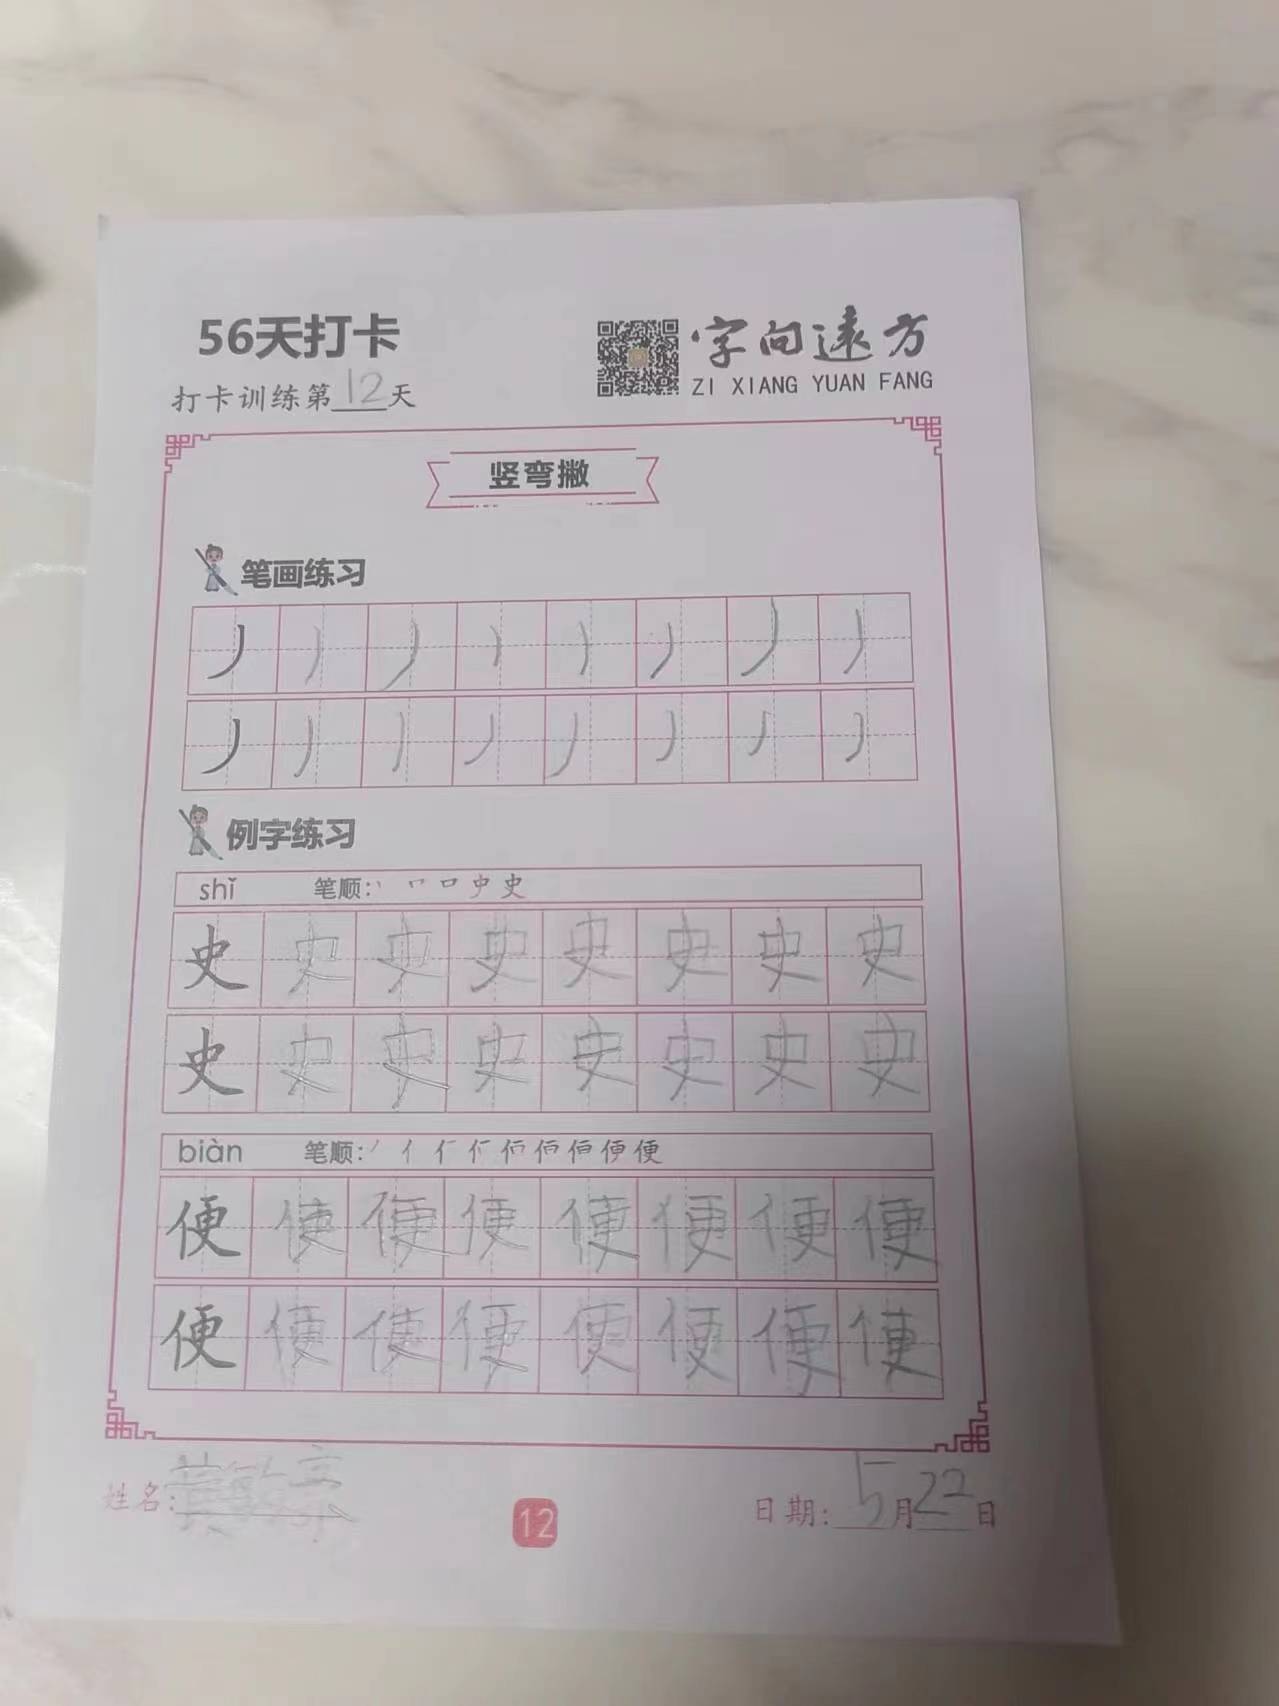 56天打卡
字向遠方
打卡训练第12天
ZI XIANG YUAN FANG
竖弯撇
笔画练习
丿 丿 丿 丿 丿 丿 丿 丿
丿 丿 丿 丿 丿 丿 丿 丿
例字练习
shǐ 笔顺: 丨 𠃍 口 史 史
史 史 史 史 史 史 史 史
史 史 史 史 史 史 史 史
biàn 笔顺: 丿 亻 便
便 便 便 便 便 便 便 便
便 便 便 便 便 便 便 便
姓名:
12
日期: 5月22日